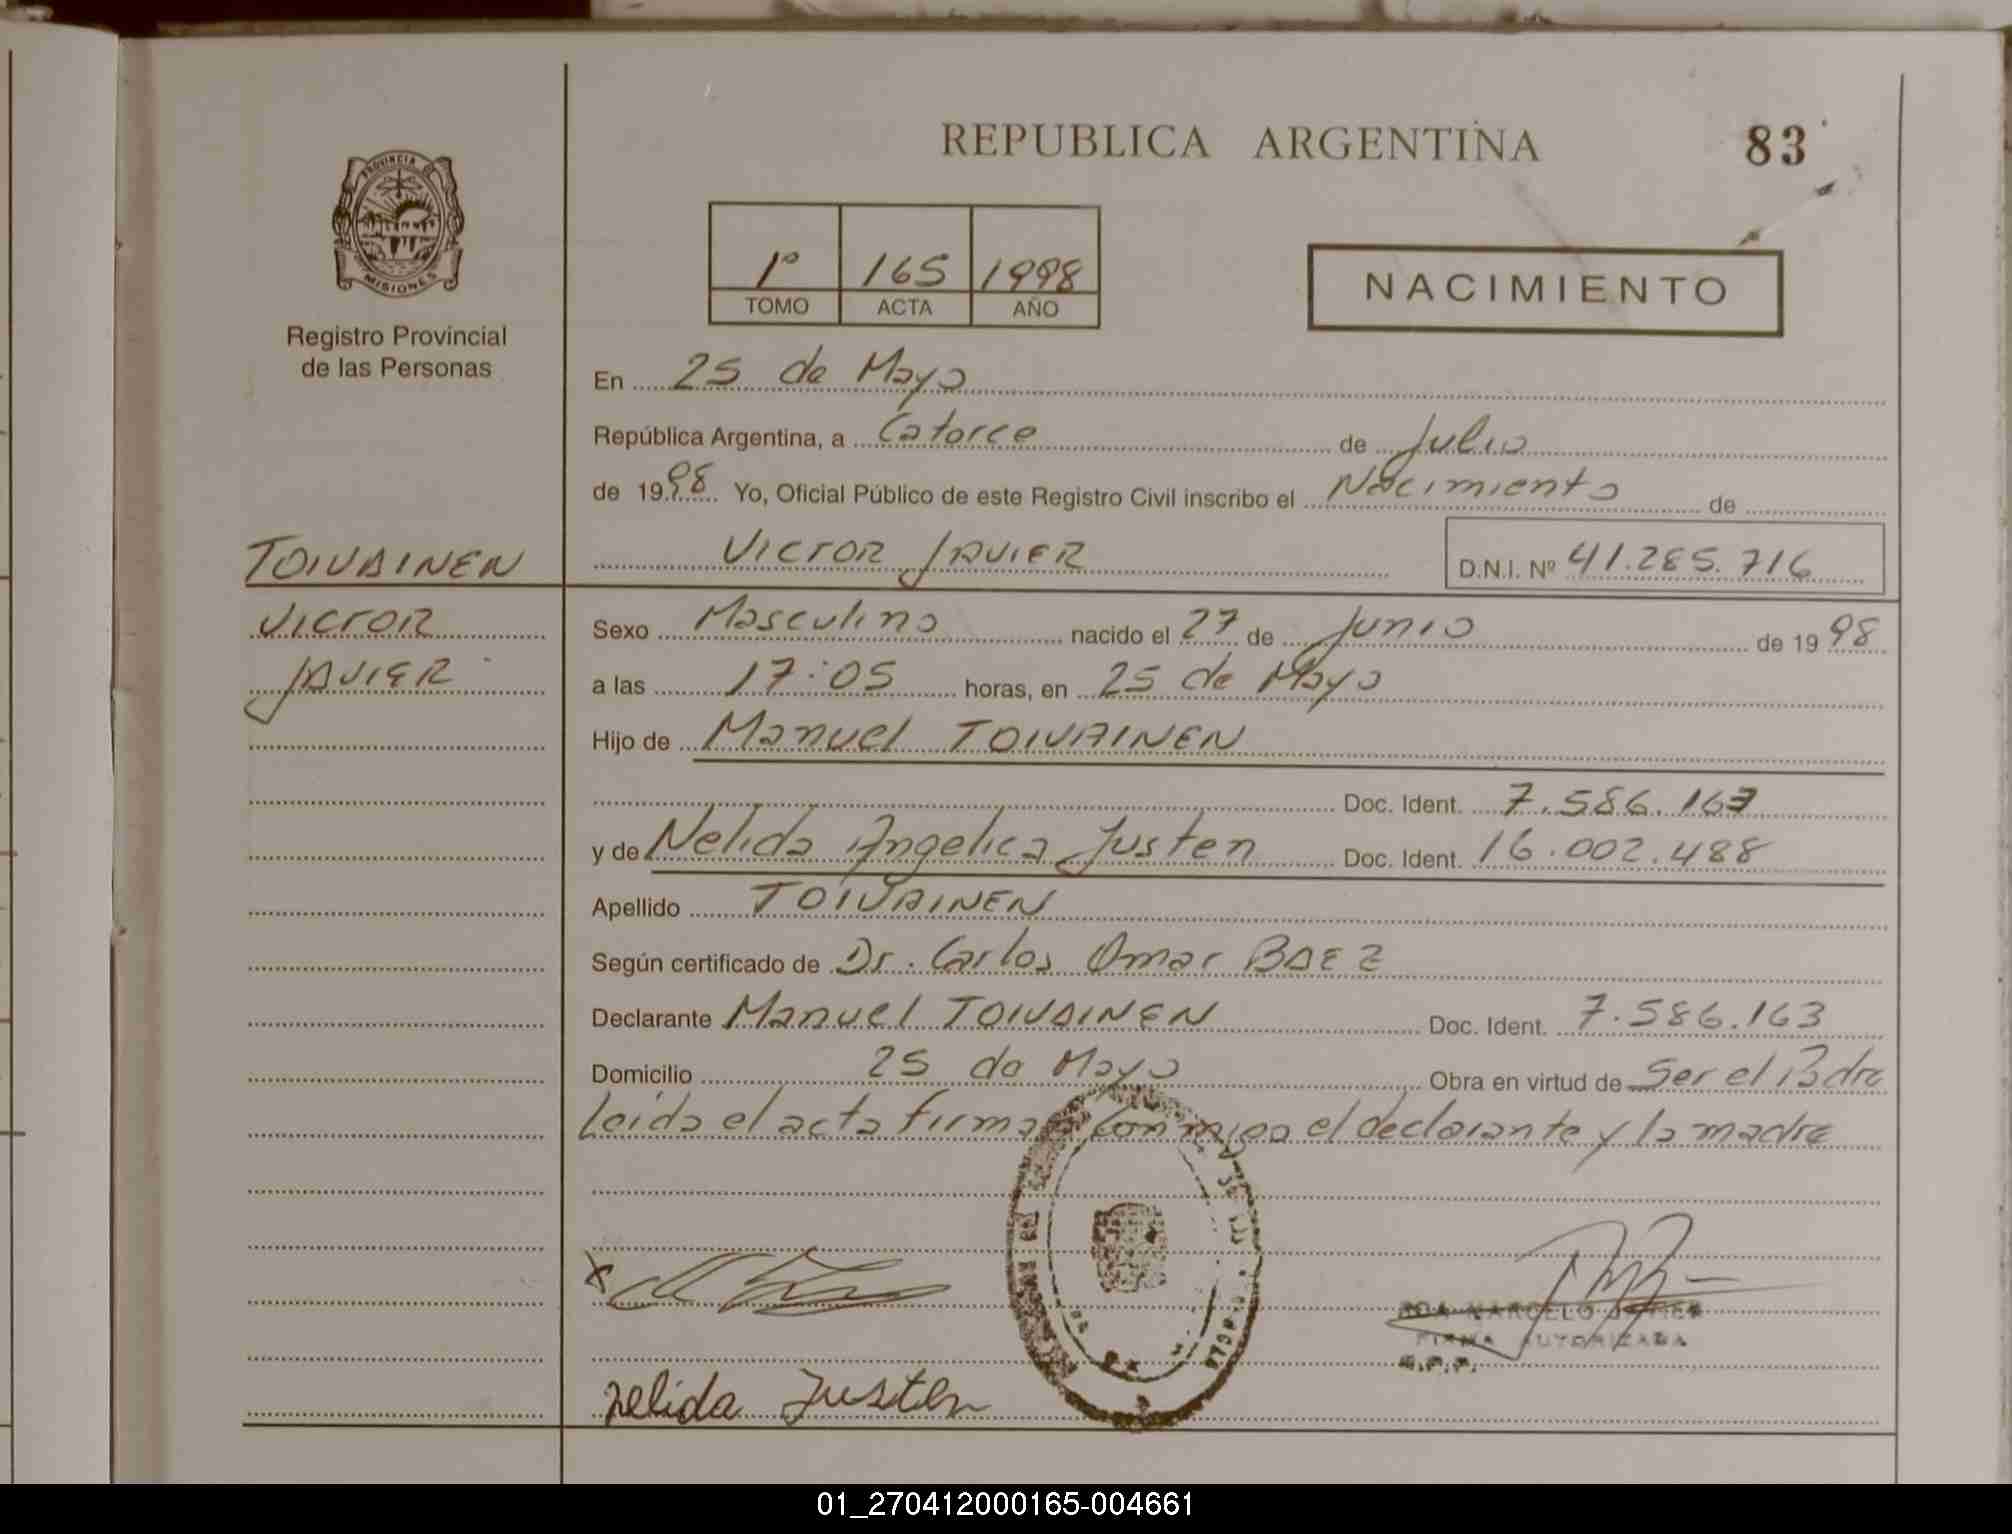 REPUBLICA ARGENTINA
83
PROVINCIA DE
MISIONES
Registro Provincial
de las Personas
1º 165 1998
TOMO ACTA AÑO
NACIMIENTO
En 25 de Mayo
República Argentina, a Catorce de Julio
de 1998 Yo, Oficial Público de este Registro Civil inscribo el Nacimiento de
TOIVAINEN
VICTOR JAVIER D.N.I. Nº 41.285.716
VICTOR
JAVIER
Sexo Masculino nacido el 27 de Junio de 1998
a las 17:05 horas, en 25 de Mayo
Hijo de Manuel TOIVAINEN
Doc. Ident. 7.586.163
y de Nelida Angelica Justen Doc. Ident. 16.002.488
Apellido TOIVAINEN
Según certificado de Dr. Carlos Omar BAEZ
Declarante Manuel TOIVAINEN Doc. Ident. 7.586.163
Domicilio 25 de Mayo Obra en virtud de Ser el Padre
Leida el acta firman conmigo el declarante y la madre
X
MARCELO
FIRMA AUTORIZADA
Nelida Justen
01_270412000165-004661